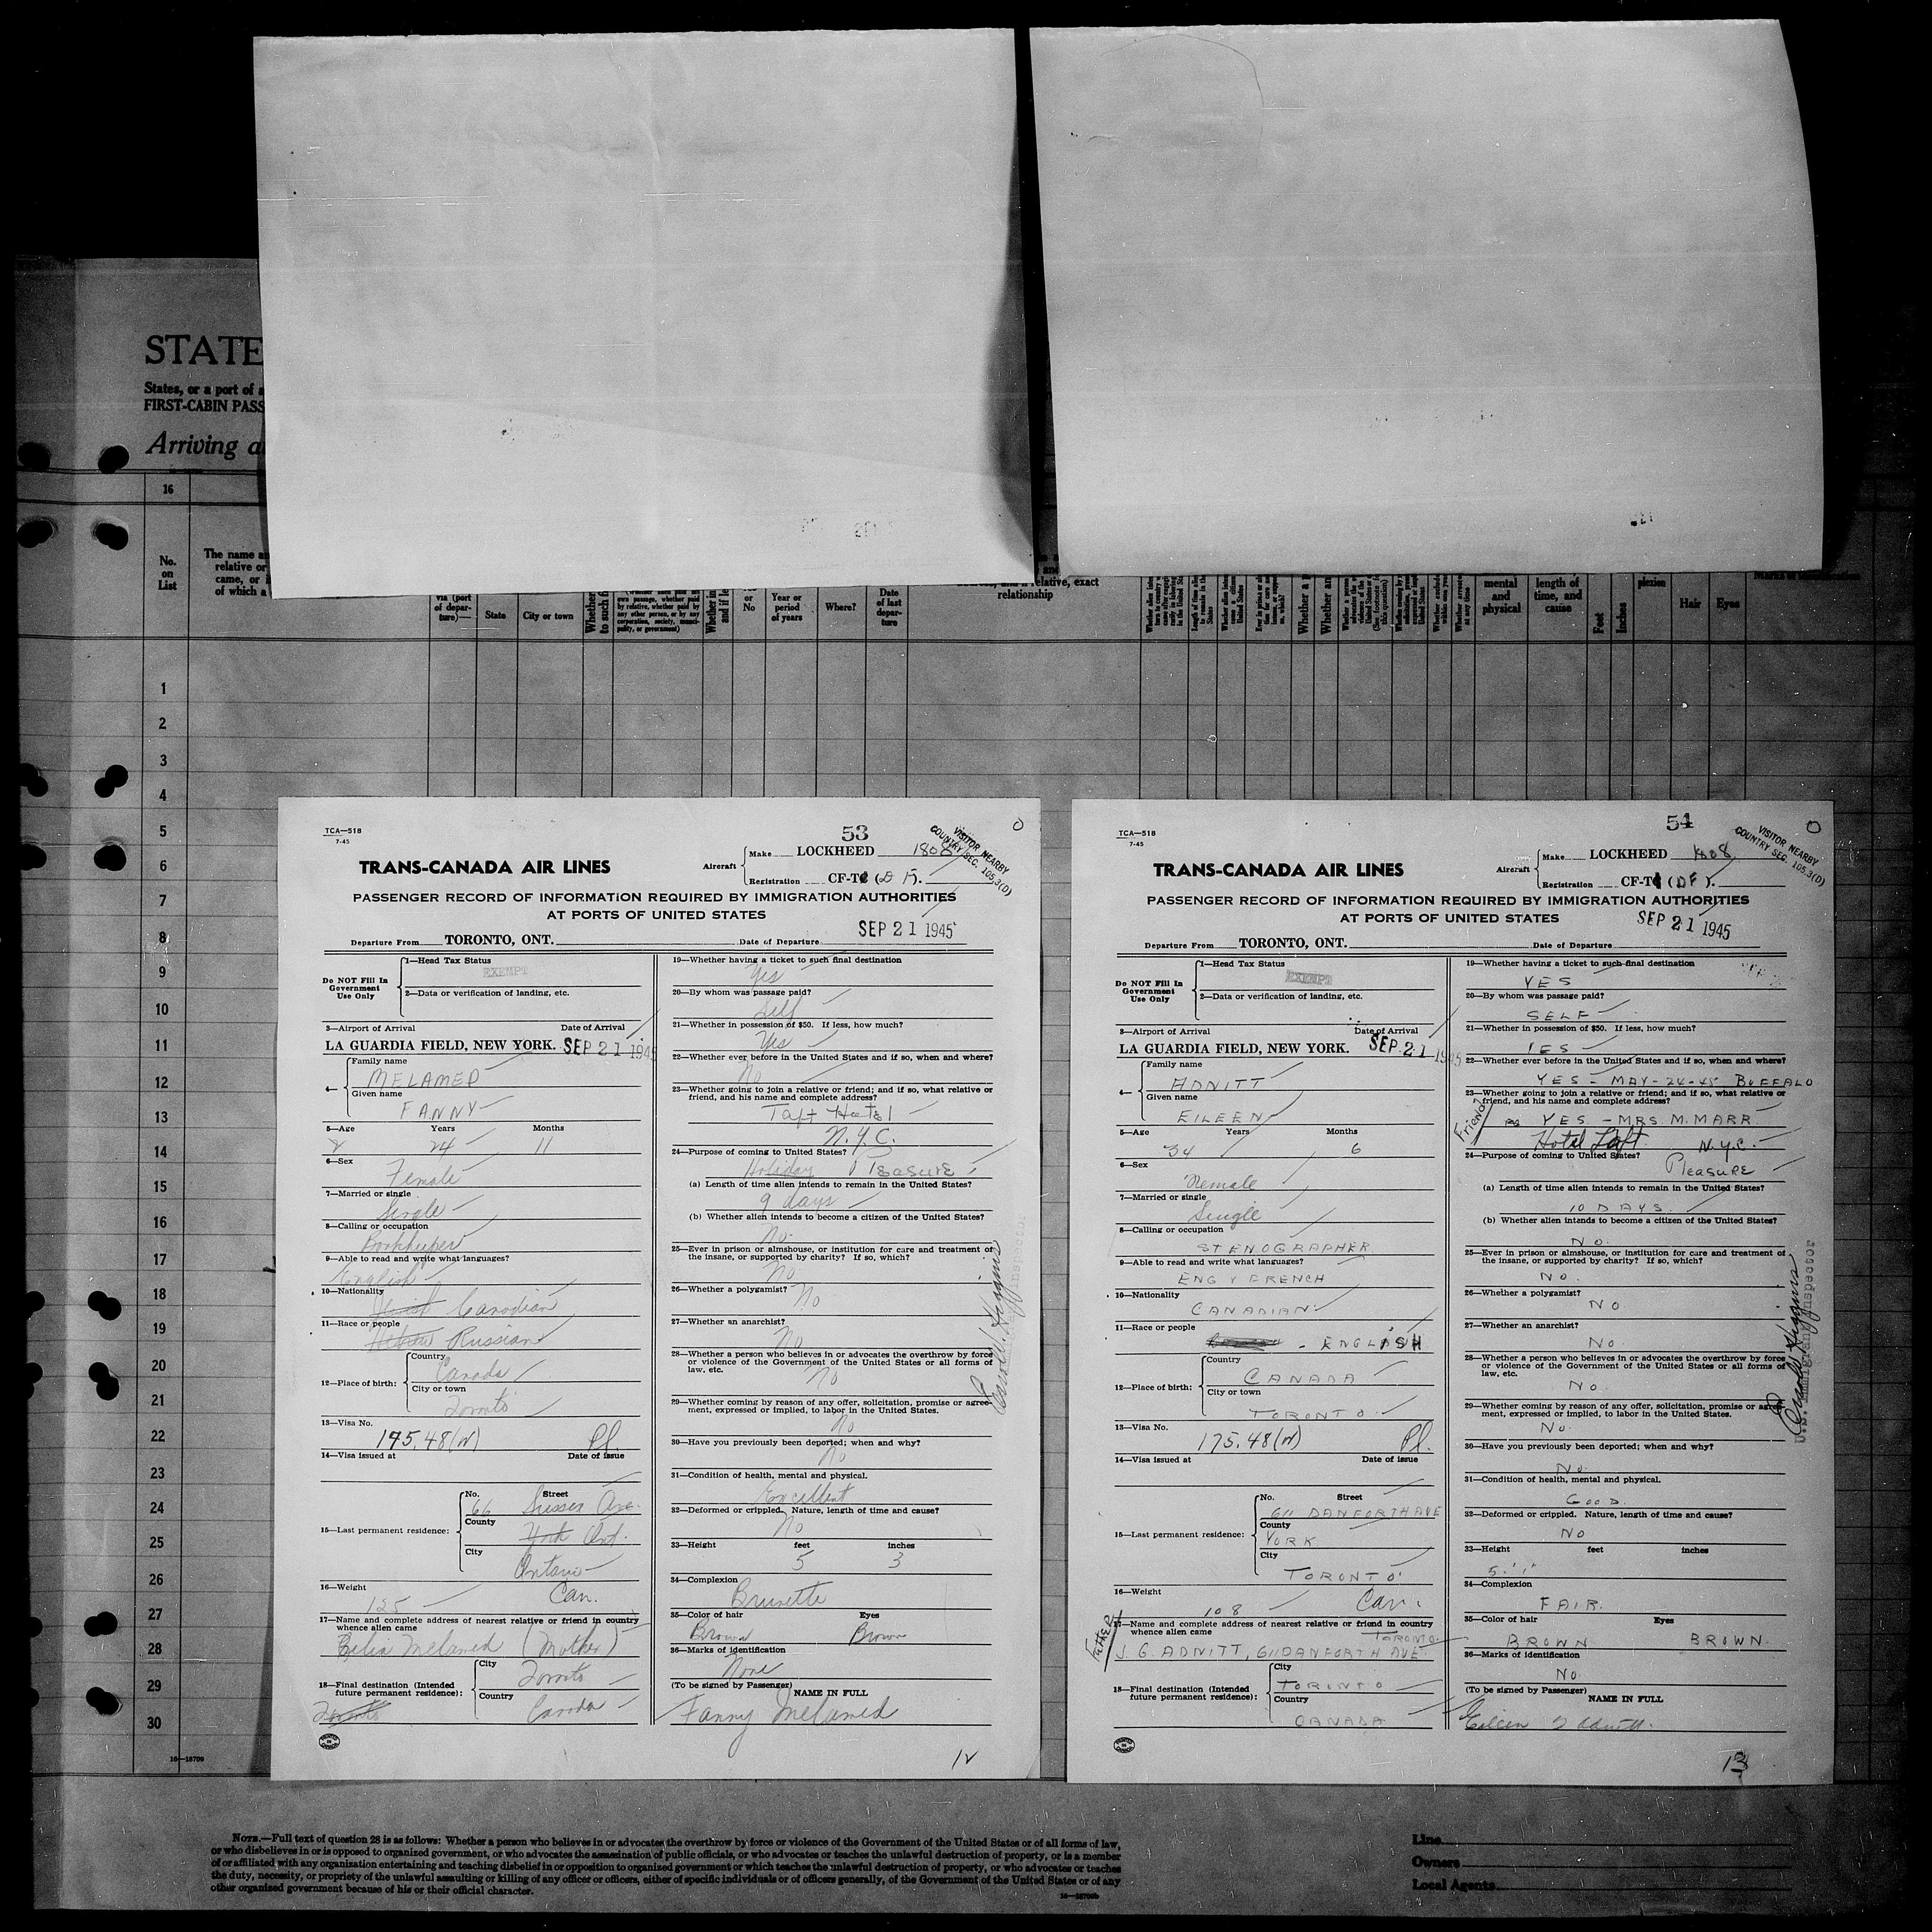 STATE
States, or a port of a
FIRST-CABIN PASS
Arriving a
16
No.
on
List
The name a
relative or
came, or i
of which a
via (port
of depar-
ture)—
State
City or town
Whether
to such f
own passage, whether paid
by relative, whether paid by
any other person, or by any
corporation, society, munici-
pality, or government)
Whether in
and if le
or
No
Year or
period
of years
Where?
Date
of last
depar-
ture
relative, exact
relationship
Whether a
Whether an
mental
and
physical
length of
time, and
cause
Feet
Inches
plexion
Hair
Eyes
1
2
3
4
5
6
7
8
9
10
11
12
13
14
15
16
17
18
19
20
21
22
23
24
25
26
27
28
29
30
16—18709
TCA—518
7-45
53
VISITOR NEARBY
COUNTRY SEC. 105.3(D)
TRANS-CANADA AIR LINES
Aircraft
Make LOCKHEED 1808
Registration CF-TC (D F).
PASSENGER RECORD OF INFORMATION REQUIRED BY IMMIGRATION AUTHORITIES
AT PORTS OF UNITED STATES
SEP 21 1945
Departure From TORONTO, ONT. Date of Departure
Do NOT Fill In
Government
Use Only
1—Head Tax Status
EXEMPT
2—Data or verification of landing, etc.
3—Airport of Arrival Date of Arrival
LA GUARDIA FIELD, NEW YORK. SEP 21 1945
4—
Family name
MELAMED
Given name
FANNY
5—Age Years Months
24 11
6—Sex
Female
7—Married or single
Single
8—Calling or occupation
Bookkeeper
9—Able to read and write what languages?
English
10—Nationality
Canadian
11—Race or people
Hebrew Russian
12—Place of birth:
Country
Canada
City or town
Toronto
13—Visa No.
175.48(W) Pl.
14—Visa issued at Date of issue
15—Last permanent residence:
No. Street
66 Sussex Ave.
County
York Ont.
City
Ontario
16—Weight
125 Can.
17—Name and complete address of nearest relative or friend in country
whence alien came
Celia Melamed (Mother)
18—Final destination (Intended
future permanent residence):
City
Toronto
Country
Canada
Toronto
19—Whether having a ticket to such final destination
Yes
20—By whom was passage paid?
Self
21—Whether in possession of $50. If less, how much?
Yes
22—Whether ever before in the United States and if so, when and where?
No
23—Whether going to join a relative or friend; and if so, what relative or
friend, and his name and complete address?
Taft Hotel
N.Y.C.
24—Purpose of coming to United States?
Holiday Pleasure
(a) Length of time alien intends to remain in the United States?
9 days
(b) Whether alien intends to become a citizen of the United States?
No.
25—Ever in prison or almshouse, or institution for care and treatment of
the insane, or supported by charity? If so, which?
No
26—Whether a polygamist?
No
27—Whether an anarchist?
No
28—Whether a person who believes in or advocates the overthrow by force
or violence of the Government of the United States or all forms of
law, etc.
No
29—Whether coming by reason of any offer, solicitation, promise or agree-
ment, expressed or implied, to labor in the United States.
No
30—Have you previously been deported; when and why?
No
31—Condition of health, mental and physical.
Excellent
32—Deformed or crippled. Nature, length of time and cause?
No
33—Height feet inches
5 3
34—Complexion
Brunette
35—Color of hair Eyes
Brown Brown
36—Marks of identification
None
(To be signed by Passenger)
NAME IN FULL
Fanny Melamed
Carroll Higgins
12
TCA—518
7-45
54
VISITOR NEARBY
COUNTRY SEC. 105.3(D)
TRANS-CANADA AIR LINES
Aircraft
Make LOCKHEED 1808
Registration CF-T (DF).
PASSENGER RECORD OF INFORMATION REQUIRED BY IMMIGRATION AUTHORITIES
AT PORTS OF UNITED STATES
SEP 21 1945
Departure From TORONTO, ONT. Date of Departure
Do NOT Fill In
Government
Use Only
1—Head Tax Status
EXEMPT
2—Data or verification of landing, etc.
3—Airport of Arrival Date of Arrival
LA GUARDIA FIELD, NEW YORK. SEP 21 1945
4—
Family name
ADNITT
Given name
EILEEN
5—Age Years Months
34 6
6—Sex
Female
7—Married or single
Single
8—Calling or occupation
STENOGRAPHER
9—Able to read and write what languages?
ENG & FRENCH
10—Nationality
CANADIAN
11—Race or people
- ENGLISH
12—Place of birth:
Country
CANADA
City or town
TORONTO
13—Visa No.
175.48(W) Pl.
14—Visa issued at Date of issue
15—Last permanent residence:
No. Street
611 DANFORTH AVE
County
YORK
City
TORONTO
16—Weight
108 Can.
Father
17—Name and complete address of nearest relative or friend in country
whence alien came
TORONTO.
J. G. ADNITT, 611 DANFORTH AVE.
18—Final destination (Intended
future permanent residence):
City
TORONTO
Country
CANADA
19—Whether having a ticket to such final destination
YES
20—By whom was passage paid?
SELF
21—Whether in possession of $50. If less, how much?
YES
22—Whether ever before in the United States and if so, when and where?
YES - MAY-24-45 BUFFALO
23—Whether going to join a relative or friend; and if so, what relative or
friend, and his name and complete address?
Friend
YES - MRS. M. MARR
Hotel Taft N.Y.C.
24—Purpose of coming to United States?
PLEASURE
(a) Length of time alien intends to remain in the United States?
10 DAYS.
(b) Whether alien intends to become a citizen of the United States?
NO.
25—Ever in prison or almshouse, or institution for care and treatment of
the insane, or supported by charity? If so, which?
NO.
26—Whether a polygamist?
NO
27—Whether an anarchist?
NO.
28—Whether a person who believes in or advocates the overthrow by force
or violence of the Government of the United States or all forms of
law, etc.
NO.
29—Whether coming by reason of any offer, solicitation, promise or agree-
ment, expressed or implied, to labor in the United States.
NO.
30—Have you previously been deported; when and why?
NO.
31—Condition of health, mental and physical.
GOOD.
32—Deformed or crippled. Nature, length of time and cause?
NO
33—Height feet inches
5' 1"
34—Complexion
FAIR.
35—Color of hair Eyes
BROWN BROWN.
36—Marks of identification
NO.
(To be signed by Passenger)
NAME IN FULL
Eileen Adnitt.
Carroll Higgins
U.S. Immigrant Inspector
13
NOTE.—Full text of question 28 is as follows: Whether a person who believes in or advocates the overthrow by force or violence of the Government of the United States or of all forms of law,
or who disbelieves in or is opposed to organized government, or who advocates the assassination of public officials, or who advocates or teaches the unlawful destruction of property, or is a member
of or affiliated with any organization entertaining and teaching disbelief in or opposition to organized government or which teaches the unlawful destruction of property, or who advocates or teaches
the duty, necessity, or propriety of the unlawful assaulting or killing of any officer or officers, either of specific individuals or of officers generally, of the Government of the United States or of any
other organized government because of his or their official character.
16—18709b
Line
Owners
Local Agents